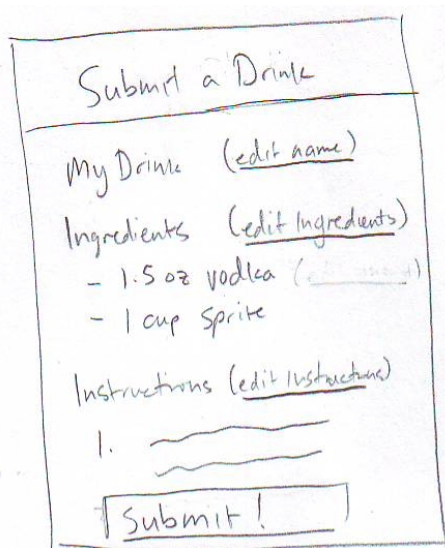 Submit a Drink
My Drink (edit name)
Ingredients (edit Ingredients)
- 1.5 oz vodka
- 1 cup sprite
Instructions (edit instructions)
1.
Submit!